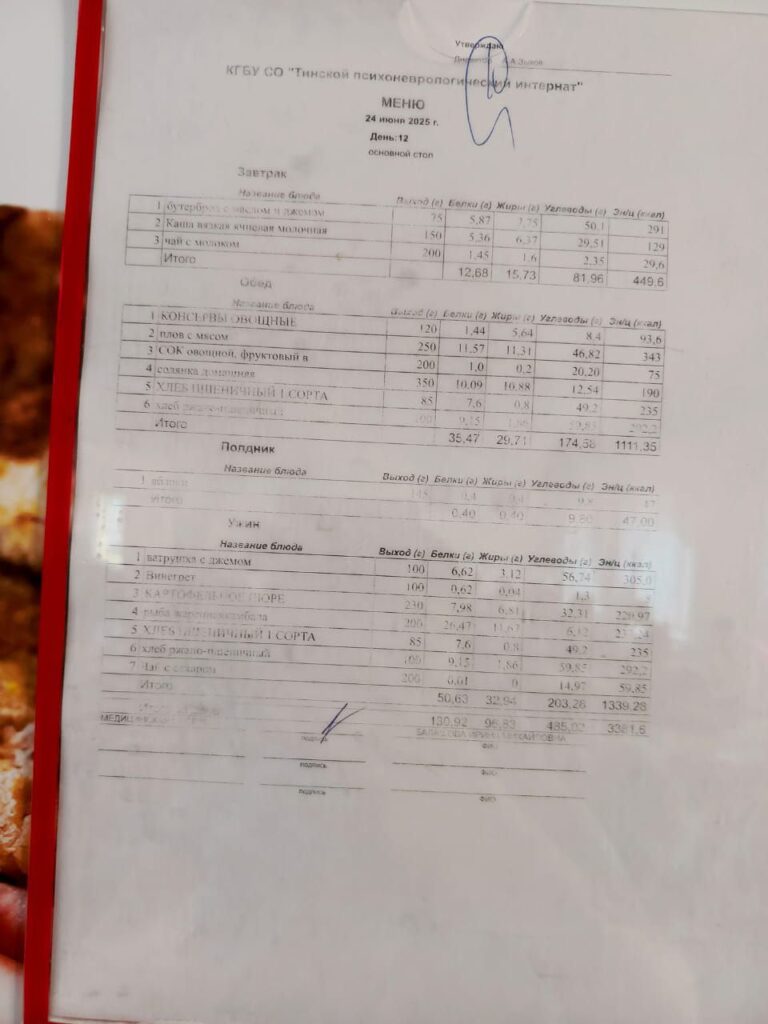 Утверждаю
Директор А.А.Зыков
КГБУ СО "Тинской психоневрологический интернат"
МЕНЮ
24 июня 2025 г.
День:12
основной стол
Завтрак
Название блюда Выход (г) Белки (г) Жиры (г) Углеводы (г) Эн/ц (ккал)
1 бутерброд с маслом и джемом 75 5,87 7,75 50,1 291
2 Каша вязкая ячневая молочная 150 5,36 6,37 29,51 129
3 чай с молоком 200 1,45 1,6 2,35 29,6
Итого 12,68 15,73 81,96 449,6
Обед
Название блюда Выход (г) Белки (г) Жиры (г) Углеводы (г) Эн/ц (ккал)
1 КОНСЕРВЫ ОВОЩНЫЕ 120 1,44 5,64 8,4 93,6
2 плов с мясом 250 11,57 11,31 46,82 343
3 СОК овощной, фруктовый в 200 1,0 0,2 20,20 75
4 солянка домашняя 350 10,09 10,88 12,54 190
5 ХЛЕБ ПШЕНИЧНЫЙ 1 СОРТА 85 7,6 0,8 49,2 235
6 хлеб ржано-пшеничный 100 9,15 1,86 59,85 292,2
Итого 35,47 29,71 174,58 1111,35
Полдник
Название блюда Выход (г) Белки (г) Жиры (г) Углеводы (г) Эн/ц (ккал)
1 яблоки 145 0,4 0,4 9,8 47
Итого 0,40 0,40 9,80 47,00
Ужин
Название блюда Выход (г) Белки (г) Жиры (г) Углеводы (г) Эн/ц (ккал)
1 ватрушка с джемом 100 6,62 3,12 56,74 305,0
2 Винегрет 100 0,62 0,04 1,3
3 КАРТОФЕЛЬНОЕ ПЮРЕ 230 7,98 6,81 32,31 220,97
4 рыба жареная камбала 200 26,47 11,67
5 ХЛЕБ ПШЕНИЧНЫЙ 1 СОРТА 85 7,6 0,8 49,2 235
6 хлеб ржано-пшеничный 100 9,15 1,86 59,85 292,2
7 Чай с сахаром 200 0,01 0 14,97 59,85
Итого 50,63 32,94 203,28 1339,28
Итого 130,92 96,83 485,02 3381,6
ИРИНА МИХАЙЛОВНА
подпись ФИО
подпись ФИО
подпись ФИО